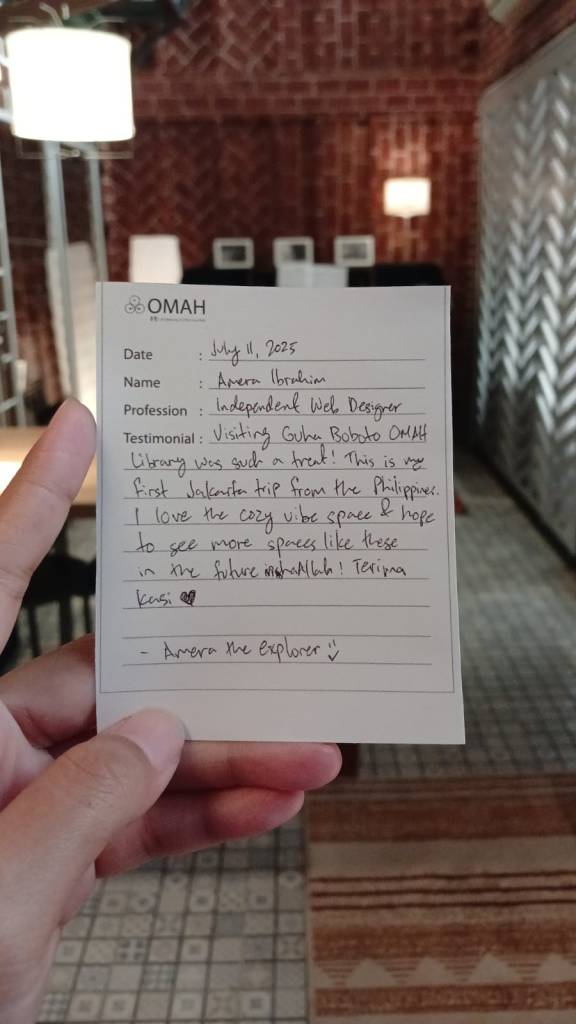 OMAH
Date : July 11, 2025
Name : Amera Ibrahim
Profession : Independent Web Designer
Testimonial : Visiting Guha Boboto OMAH
Library was such a treat! This is my
first Jakarta trip from the Philippines.
I love the cozy vibe space & hope
to see more spaces like these
in the future inshaAllah! Terima
kasi ♥
- Amera the explorer :)